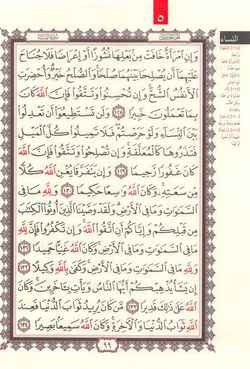 ٥
النساء
وَإِنِ ٱمْرَأَةٌ خَافَتْ مِنۢ بَعْلِهَا نُشُوزًا أَوْ إِعْرَاضًا فَلَا جُنَاحَ
عَلَيْهِمَآ أَن يُصْلِحَا بَيْنَهُمَا صُلْحًا وَٱلصُّلْحُ خَيْرٌ وَأُحْضِرَتِ
ٱلْأَنفُسُ ٱلشُّحَّ وَإِن تُحْسِنُوا۟ وَتَتَّقُوا۟ فَإِنَّ ٱللَّهَ كَانَ
بِمَا تَعْمَلُونَ خَبِيرًا ١٢٨ وَلَن تَسْتَطِيعُوٓا۟ أَن تَعْدِلُوا۟
بَيْنَ ٱلنِّسَآءِ وَلَوْ حَرَصْتُمْ فَلَا تَمِيلُوا۟ كُلَّ ٱلْمَيْلِ
فَتَذَرُوهَا كَٱلْمُعَلَّقَةِ وَإِن تُصْلِحُوا۟ وَتَتَّقُوا۟ فَإِنَّ ٱللَّهَ
كَانَ غَفُورًا رَّحِيمًا ١٢٩ وَإِن يَتَفَرَّقَا يُغْنِ ٱللَّهُ كُلًّا
مِّن سَعَتِهِۦ وَكَانَ ٱللَّهُ وَٰسِعًا حَكِيمًا ١٣٠ وَلِلَّهِ مَا فِى
ٱلسَّمَٰوَٰتِ وَمَا فِى ٱلْأَرْضِ وَلَقَدْ وَصَّيْنَا ٱلَّذِينَ أُوتُوا۟ ٱلْكِتَٰبَ
مِن قَبْلِكُمْ وَإِيَّاكُمْ أَنِ ٱتَّقُوا۟ ٱللَّهَ وَإِن تَكْفُرُوا۟ فَإِنَّ لِلَّهِ
مَا فِى ٱلسَّمَٰوَٰتِ وَمَا فِى ٱلْأَرْضِ وَكَانَ ٱللَّهُ غَنِيًّا حَمِيدًا ١٣١
وَلِلَّهِ مَا فِى ٱلسَّمَٰوَٰتِ وَمَا فِى ٱلْأَرْضِ وَكَفَىٰ بِٱللَّهِ وَكِيلًا ١٣٢
إِن يَشَأْ يُذْهِبْكُمْ أَيُّهَا ٱلنَّاسُ وَيَأْتِ بِـَٔاخَرِينَ وَكَانَ
ٱللَّهُ عَلَىٰ ذَٰلِكَ قَدِيرًا ١٣٣ مَّن كَانَ يُرِيدُ ثَوَابَ ٱلدُّنْيَا فَعِندَ
ٱللَّهِ ثَوَابُ ٱلدُّنْيَا وَٱلْءَاخِرَةِ وَكَانَ ٱللَّهُ سَمِيعًۢا بَصِيرًا ١٣٤
٩٩